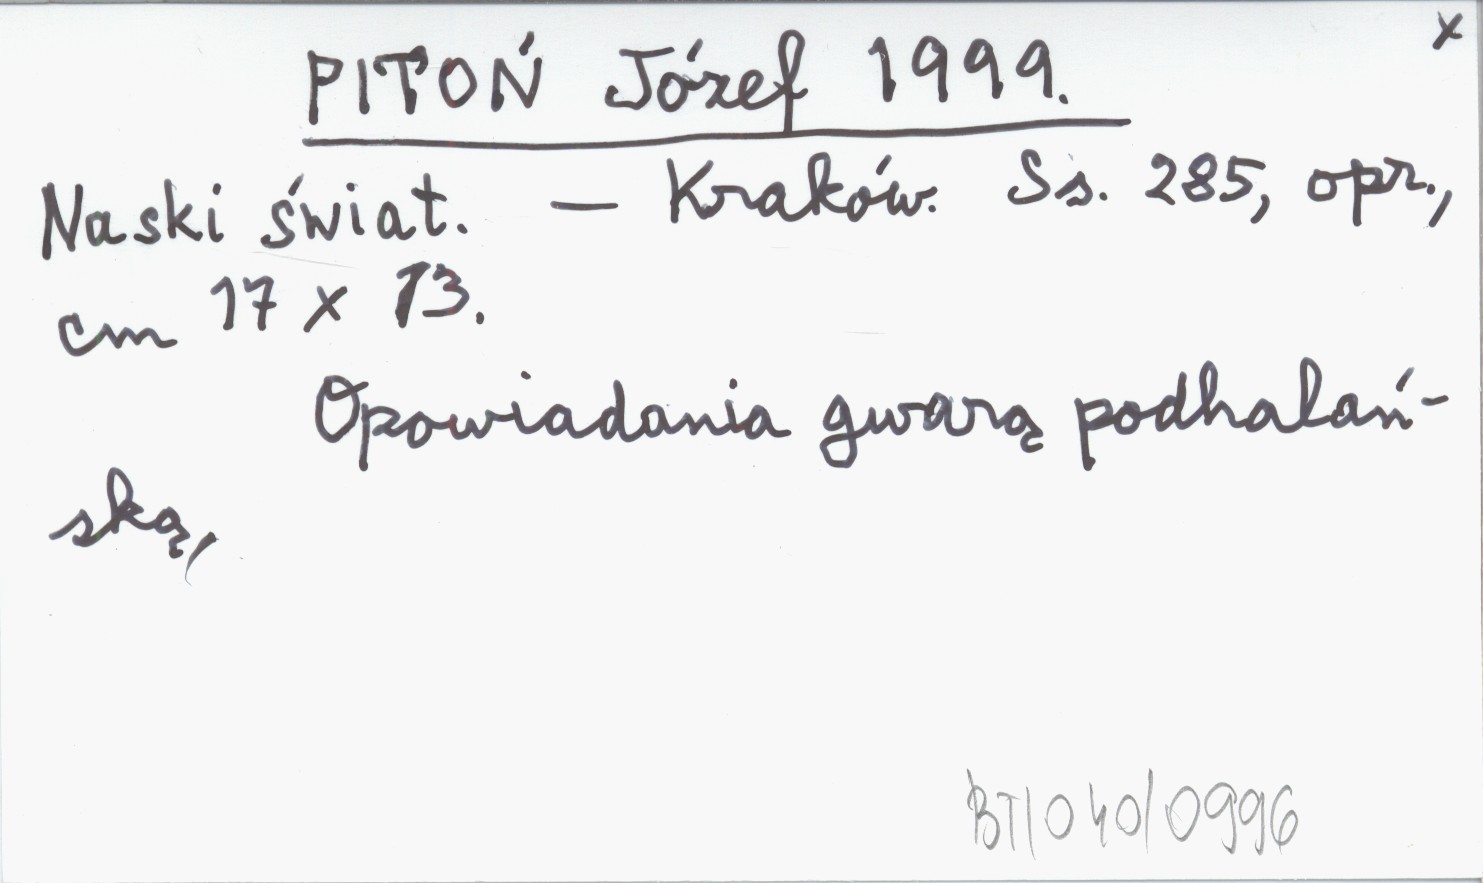 x
PITOŃ Józef 1999.
Naski świat. — Kraków. Ss. 285, opr.,
cm 17 x 13.
Opowiadania gwarą podhalań-
ską,
BT/040/0996